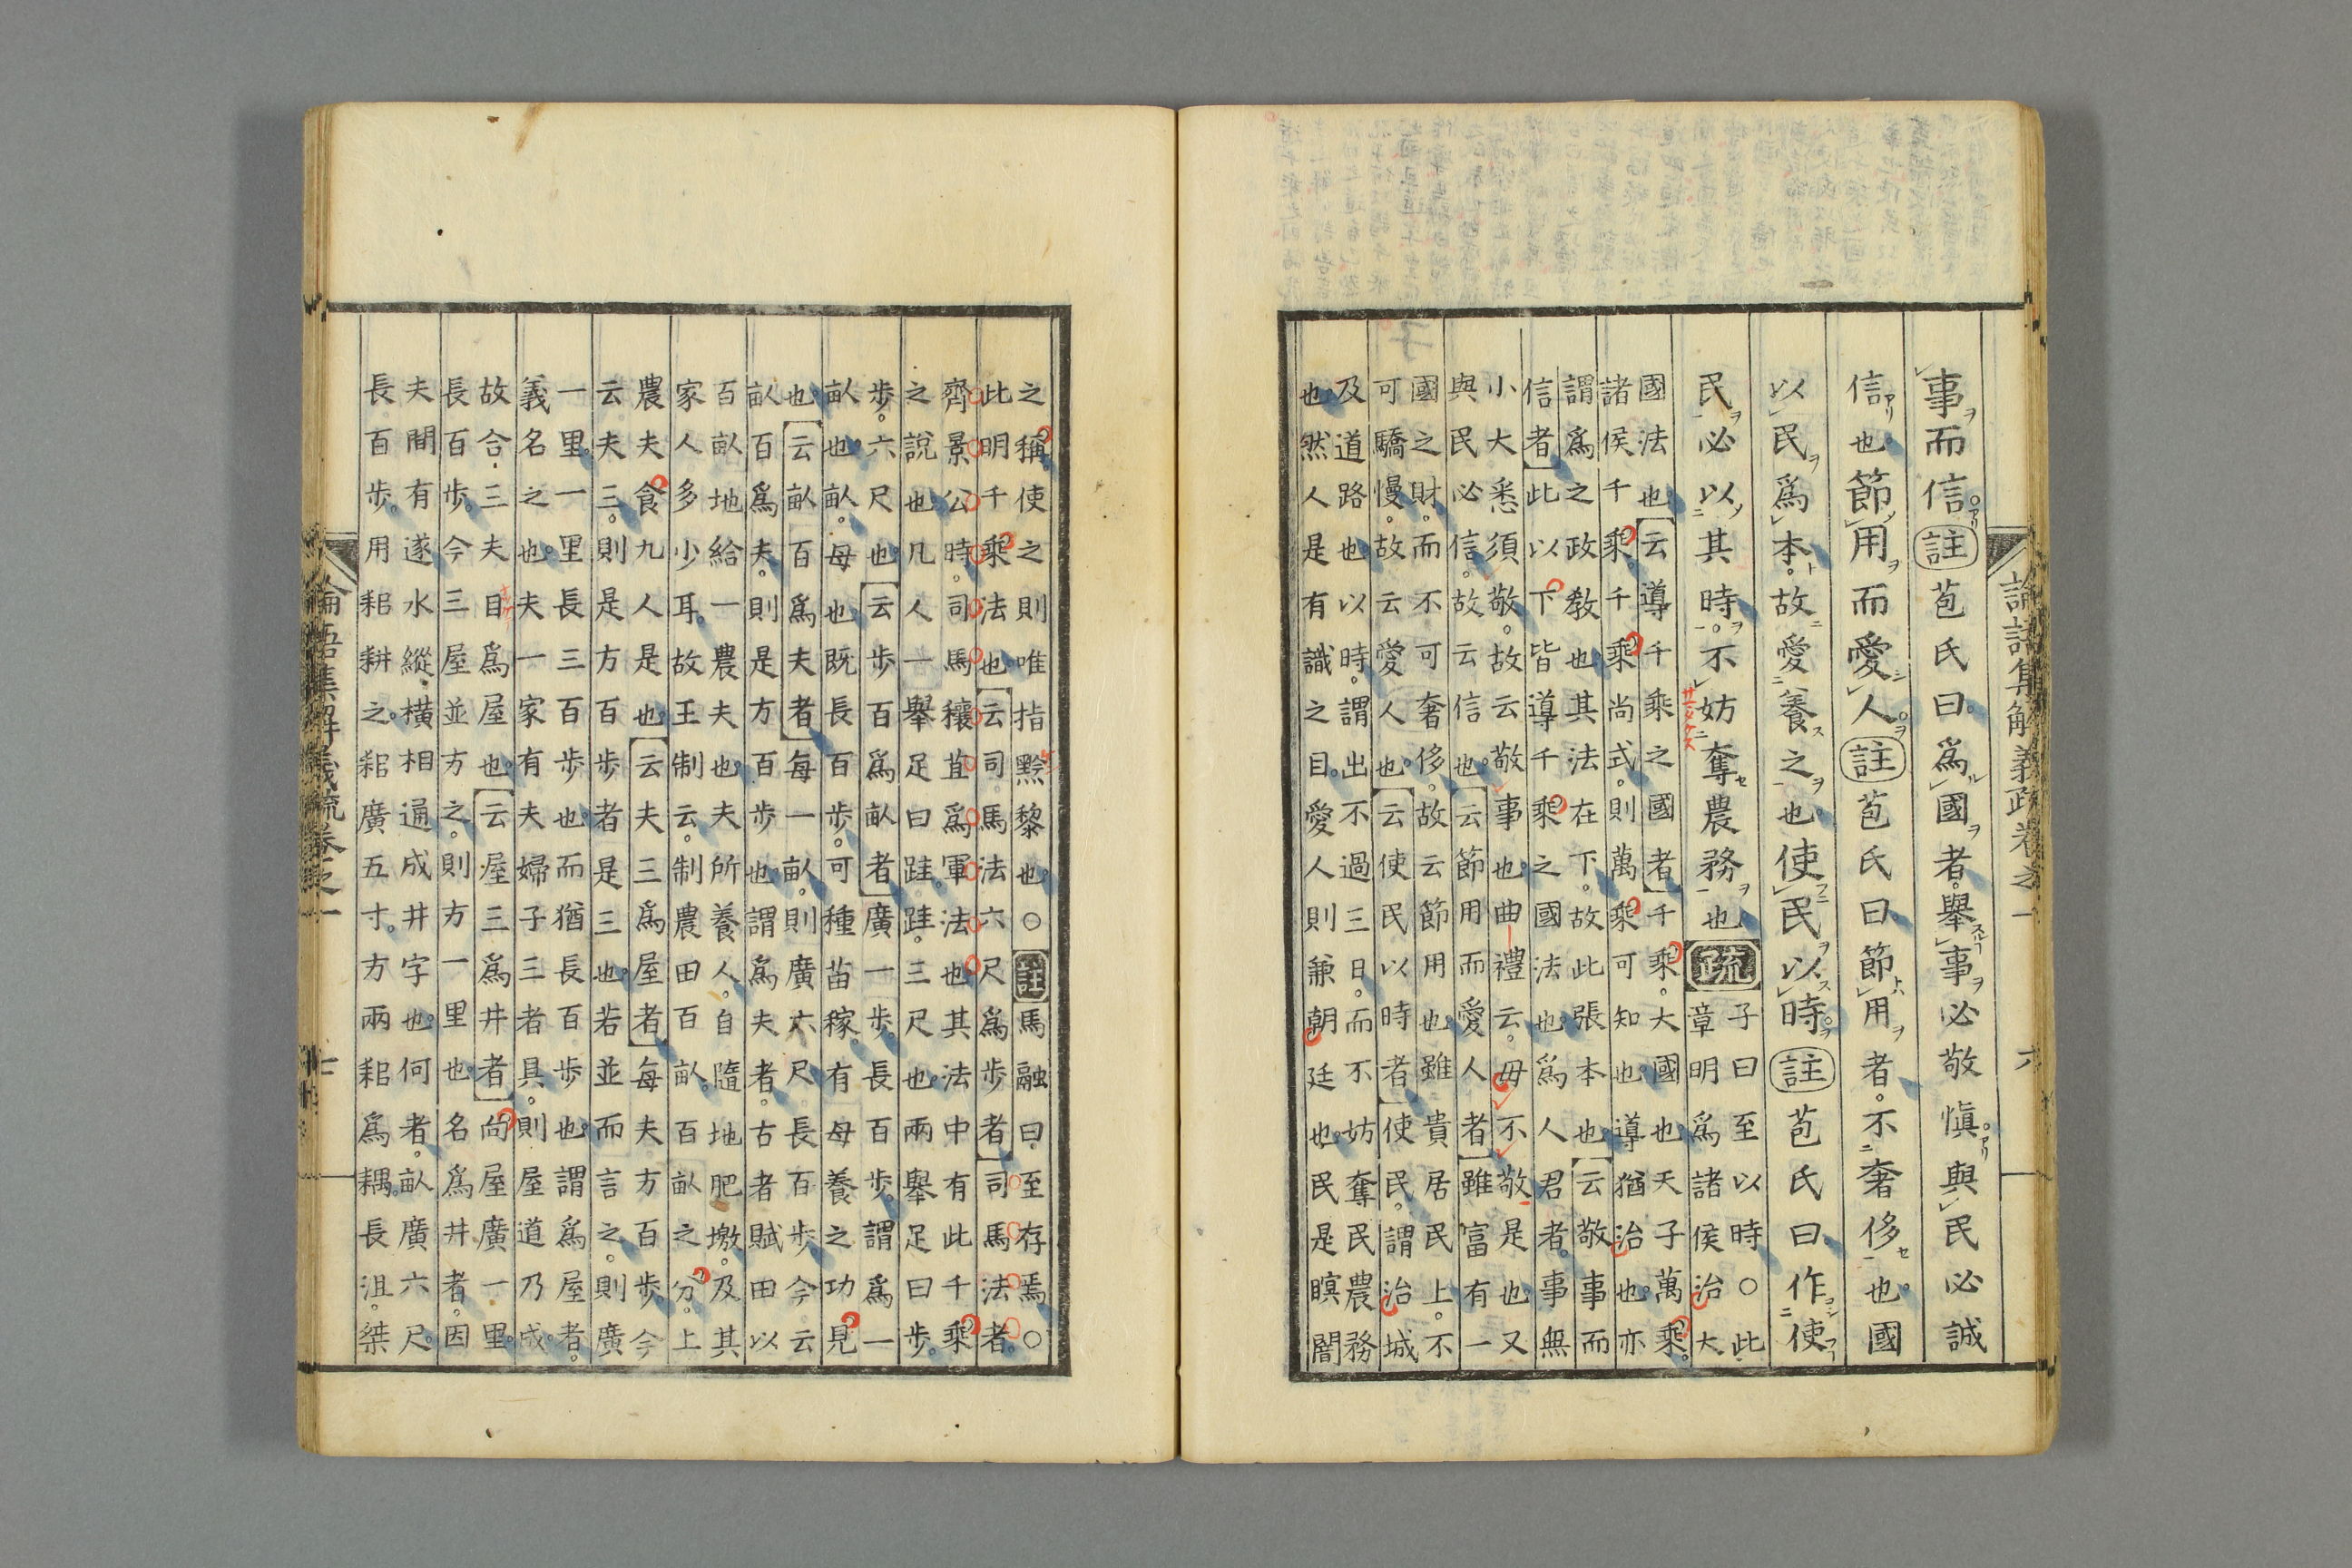 事而信註苞氏曰爲國者舉事必敬愼與民必誠
信也節用而愛人註苞氏曰節用者不奢侈也國
以民爲本故愛養之也使民以時註苞氏曰作使
民必以其時不妨奪農務也疏
子曰至以時○此
章明爲諸侯治大
國法也云導千乘之國者千乘大國也天子萬乘
諸侯千乘千乘尚式則萬乘可知也導猶治也亦
謂爲之政敎也其法在下故此張本也云敬事而
信者此以下皆導千乘之國法也爲人君者事無
小大悉須敬故云敬事也曲禮云毋不敬是也又
與民必信故云信也云節用而愛人者雖富有一
國之財而不可奢侈故云節用也雖貴居民上不
可驕慢故云愛人也云使民以時者使民謂治城
及道路也以時謂出不過三日而不妨奪民農務
也然人是有識之目愛人則兼朝廷也民是瞑闇
論語集解義疏卷之一
六
之稱使之則唯指黔黎也○註馬融曰至存焉○
此明千乘法也云司馬法六尺爲步者司馬法者
齊景公時司馬穰苴爲軍法也其法中有此千乘
之說也凡人一舉足曰跬跬三尺也兩舉足曰步
步六尺也云步百爲畝者廣一步長百步謂爲一
畝也畝母也既長百步可種苗稼有母養之功見
也云畝百爲夫者每一畝則廣六尺長百步今云
畝百爲夫則是方百步也謂爲夫者古者賦田以
百畝地給一農夫也夫所養人自隨地肥墝及其
家人多少耳故王制云制農田百畝百畝之分上
農夫食九人是也云夫三爲屋者每夫方百步今
云夫三則是方百步者是三也若並而言之則廣
一里一里長三百步也而猶長百步也謂爲屋者
義名之也夫一家有夫婦子三者具則屋道乃成
故合三夫目爲屋也云屋三爲井者向屋廣一里
長百步今三屋並方之則方一里也名爲井者因
夫間有遂水縱橫相通成井字也何者畝廣六尺
長百步用耜耕之耜廣五寸方兩耜爲耦長沮桀
論語集解義疏卷之一
七